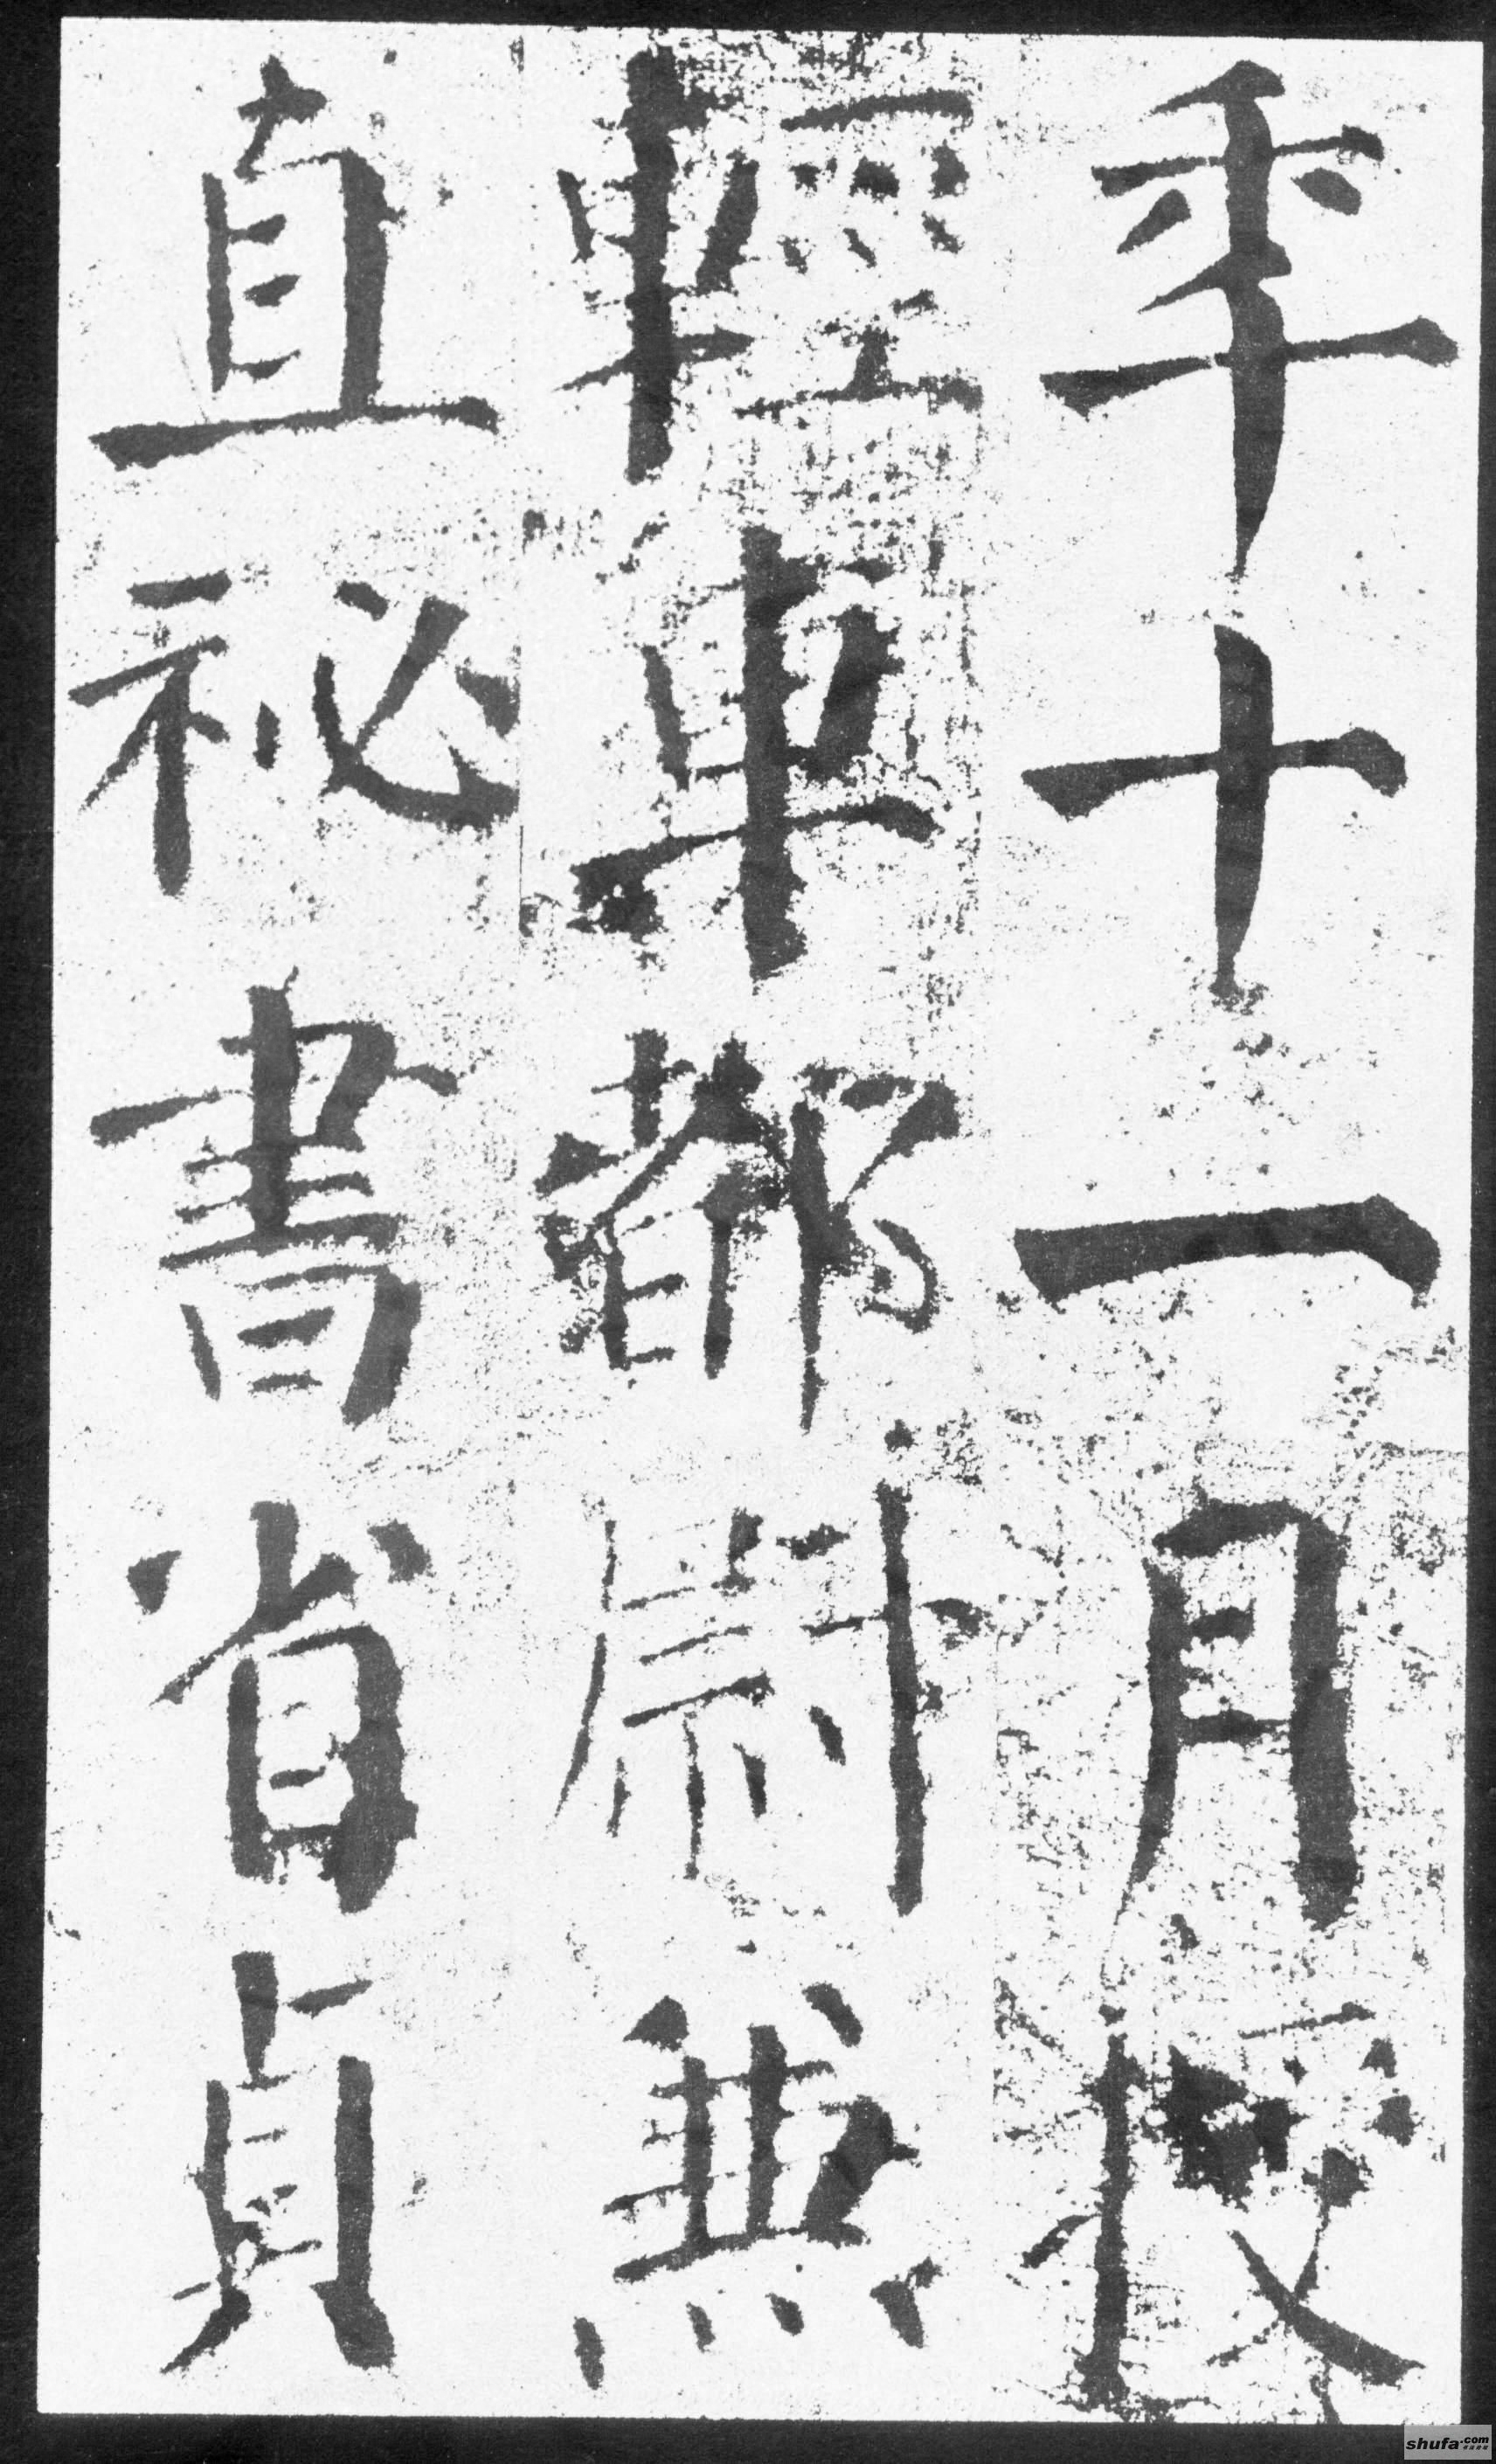 年十一月授
輕車都尉兼
直祕書省貞
shufa.com